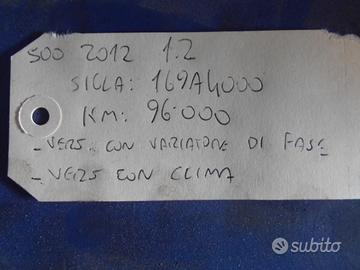 500 2012 1.2
SIGLA: 169A4000
KM: 96.000
- VERS. CON VARIATORE DI FASE
- VERS CON CLIMA
subito